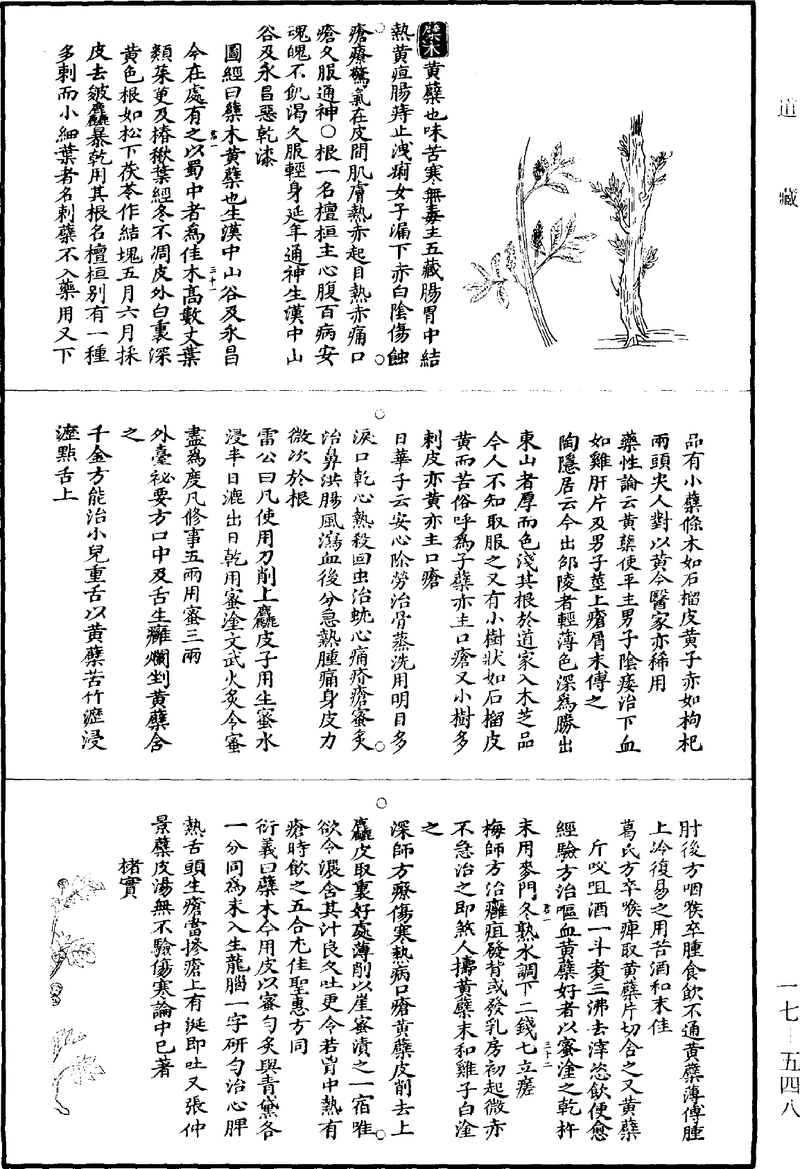 道藏
蘖木黃蘖也味苦寒無毒主五藏腸胃中結
熱黃疸腸痔止洩痢女子漏下赤白陰傷蝕
瘡療驚氣在皮間肌膚熱赤起目熱赤痛口
瘡久服通神○根一名檀桓主心腹百病安
魂魄不飢渴久服輕身延年通神生漢中山
谷及永昌惡乾漆
圖經曰蘖木黃蘖也生漢中山谷及永昌
今在處有之以蜀中者爲佳木高數丈葉
類茱萸及椿楸葉經冬不凋皮外白裏深
黃色根如松下茯苓作結塊五月六月採
皮去皴麤暴乾用其根名檀桓别有一種
多刺而小細葉者名刺蘖不入藥用又下
品有小蘖條木如石榴皮黃子赤如枸杞
兩頭尖人對以黃今醫家亦稀用
藥性論云黃蘖使平主男子陰痿治下血
如雞肝片及男子莖上瘡屑末傅之
陶隱居云今出邵陵者輕薄色深爲勝出
東山者厚而色淺其根於道家入木芝品
今人不知取服之又有小樹狀如石榴皮
黃而苦俗呼爲子蘖亦主口瘡又小樹多
刺皮亦黃亦主口瘡
日華子云安心除勞治骨蒸洗用明目多
淚口乾心熱殺疳虫治蚘心痛疥瘡蜜炙
治鼻洪腸風瀉血後分急熱腫痛身皮力
微次於根
雷公曰凡使用刀削上麤皮子用生蜜水
浸半日漉出日乾用蜜塗文武火炙令蜜
盡爲度凡修事五兩用蜜三兩
外臺祕要方口中及舌生瘡爛剉黃蘖含
之
千金方能治小兒重舌以黃蘖苦竹瀝浸
瀝點舌上
肘後方咽喉卒腫食飲不通黃蘖薄傅腫
上冷復易之用苦酒和末佳
葛氏方卒喉痺取黃蘖片切含之又黃蘖
斤㕮咀酒一斗煑三沸去滓恣飲便愈
經驗方治嘔血黃蘖好者以蜜塗之乾杵
末用麥門冬熟水調下二錢匕立瘥
梅師方治癰疽發背或發乳房初起微赤
不急治之即煞人擣黃蘖末和雞子白塗
之
深師方療傷寒熱病口瘡黃蘖皮削去上
麤皮取裏好處薄削以崖蜜漬之一宿唯
欲令濃含其汁良久吐更令若胷中熱有
瘡時飲之五合尤佳聖惠方同
衍義曰蘖木今用皮以蜜勻炙與青黛各
一分同爲末入生龍腦一字研勻治心脾
熱舌頭生瘡當摻瘡上有涎即吐又張仲
景蘖皮湯無不驗傷寒論中已著
楮實
一七–五四八